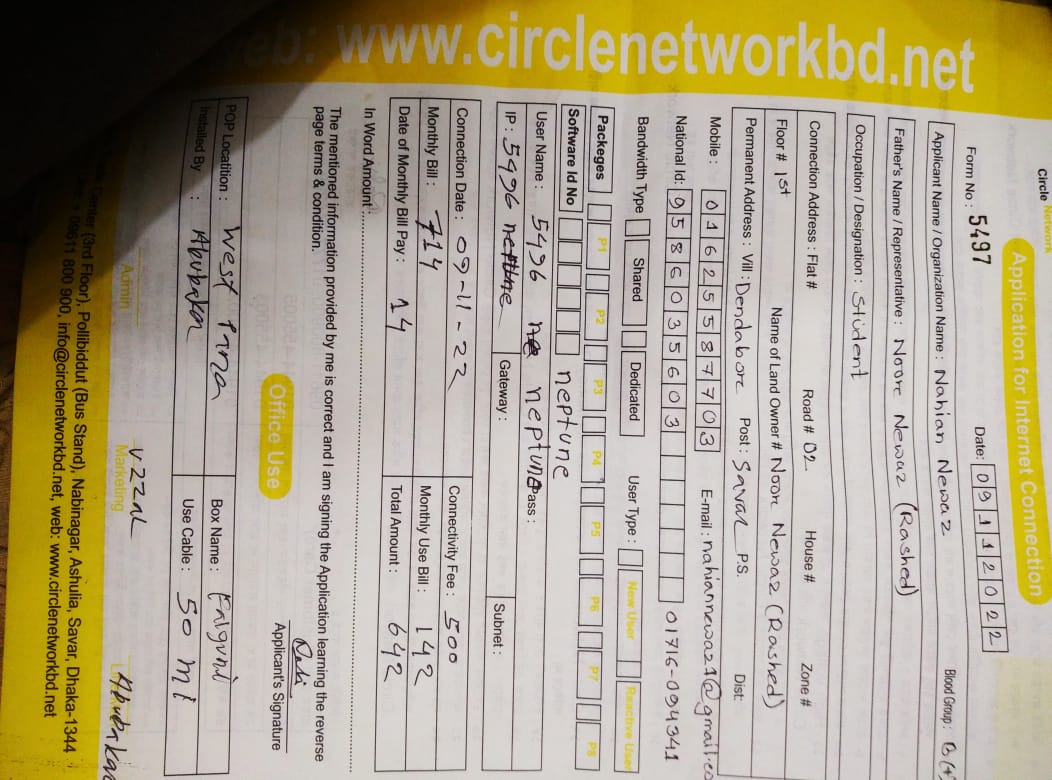 Circle Network
Application for Internet Connection
Form No : 5497 Date: 09112022
Applicant Name / Organization Name : Nahian Newaz Blood Group : B(+)
Father's Name / Representative : Noore Newaz (Rashed)
Occupation / Designation : Student
Connection Address : Flat # Road # 02 House # Zone #
Floor # 1st Name of Land Owner # Noore Newaz (Rashed)
Permanent Address : Vill : Dendabore Post : Savar P.S. Dist:
Mobile : 01625587703 E-mail : nahiannewaz1@gmail.co
National Id: 9586035603 01716-094341
Bandwidth Type Shared Dedicated User Type : New User Reactive User
Packeges P1 P2 P3 P4 P5 P6 P7 P8
Software Id No neptune
User Name : 5496 ne neptune Pass :
IP : 5496 neptune Gateway : Subnet :
Connection Date : 09-11-22 Connectivity Fee : 500
Monthly Bill : 714 Monthly Use Bill : 142
Date of Monthly Bill Pay : 14 Total Amount : 642
In Word Amount :
The mentioned information provided by me is correct and I am signing the Application learning the reverse
page terms & condition.
Applicant's Signature
Office Use
POP Locatition : West Box Name :
Installed By : Abubakar Use Cable : 50 mi
Admin Marketing Abubakar
Center (3rd Floor), Pollibiddut (Bus Stand), Nabinagar, Ashulia, Savar, Dhaka-1344
09611 800 900, info@circlenetworkbd.net, web: www.circlenetworkbd.net
web: www.circlenetworkbd.net